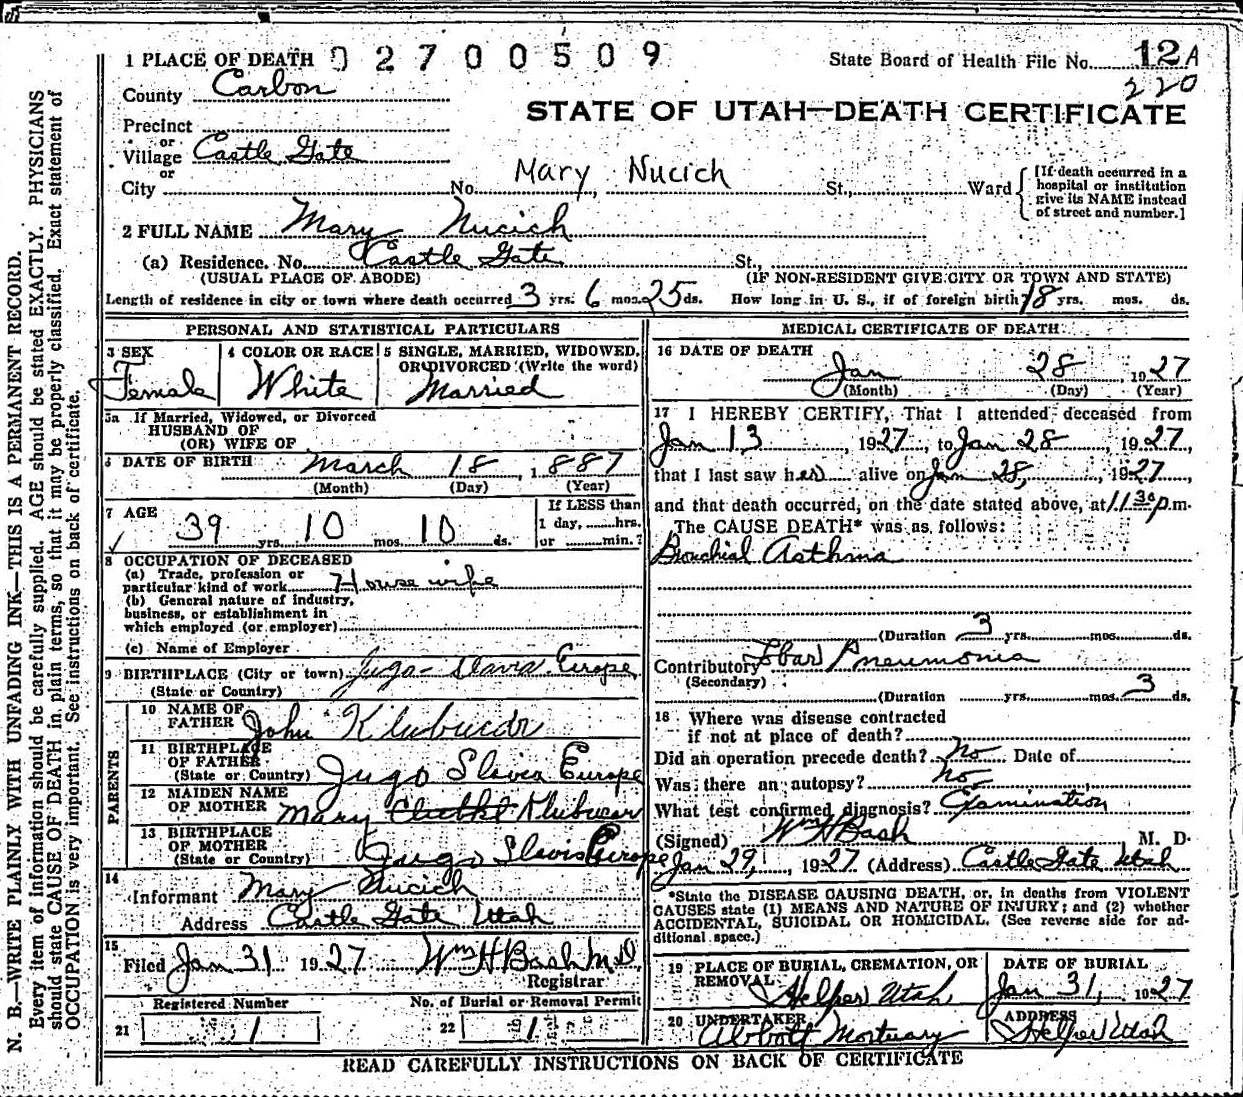 1 PLACE OF DEATH 02700509 State Board of Health File No. 12 A
220
County Carbon
STATE OF UTAH—DEATH CERTIFICATE
Precinct
or
Village Castle Gate
or
City No. Mary Nucich St., Ward
[If death occurred in a
hospital or institution
give its NAME instead
of street and number.]
2 FULL NAME Mary Nucich
(a) Residence. No. Castle Gate St.
(USUAL PLACE OF ABODE) (IF NON-RESIDENT GIVE CITY OR TOWN AND STATE)
Length of residence in city or town where death occurred 3 yrs. 6 mos. 25 ds. How long in U. S., if of foreign birth? 18 yrs. mos. ds.
PERSONAL AND STATISTICAL PARTICULARS
3 SEX 4 COLOR OR RACE 5 SINGLE, MARRIED, WIDOWED,
OR DIVORCED (Write the word)
Female White Married
5a If Married, Widowed, or Divorced
HUSBAND OF
(OR) WIFE OF
6 DATE OF BIRTH March 18, 1887
(Month) (Day) (Year)
7 AGE 39 yrs. 10 mos. 10 ds.
If LESS than
1 day, hrs.
or min.?
8 OCCUPATION OF DECEASED
(a) Trade, profession or
particular kind of work House wife
(b) General nature of industry,
business, or establishment in
which employed (or employer)
(c) Name of Employer
9 BIRTHPLACE (City or town) Jugo-Slavia Europe
(State or Country)
PARENTS
10 NAME OF
FATHER John
11 BIRTHPLACE
OF FATHER
(State or Country) Jugo Slavia Europe
12 MAIDEN NAME
OF MOTHER Mary
13 BIRTHPLACE
OF MOTHER
(State or Country) Jugo Slavia Europe
14
Informant Mary Nucich
Address Castle Gate Utah
15
Filed Jan 31 1927 Wm H Bash MD
Registrar
Registered Number No. of Burial or Removal Permit
21 1 22 1
MEDICAL CERTIFICATE OF DEATH
16 DATE OF DEATH
Jan 28 1927
(Month) (Day) (Year)
17 I HEREBY CERTIFY, That I attended deceased from
Jan 13, 1927, to Jan 28, 1927,
that I last saw her alive on Jan 28, 1927,
and that death occurred, on the date stated above, at 11 30 p.m.
The CAUSE DEATH* was as follows:
Bronchial Asthma
(Duration 3 yrs. mos. ds.
Contributory Lobar Pneumonia
(Secondary)
(Duration yrs. mos. 3 ds.
18 Where was disease contracted
if not at place of death?
Did an operation precede death? No Date of
Was there an autopsy? No
What test confirmed diagnosis? Examination
(Signed) Wm H Bash M. D.
Jan 29, 1927 (Address) Castle Gate Utah
*State the DISEASE CAUSING DEATH, or, in deaths from VIOLENT
CAUSES state (1) MEANS AND NATURE OF INJURY; and (2) whether
ACCIDENTAL, SUICIDAL OR HOMICIDAL. (See reverse side for ad-
ditional space.)
19 PLACE OF BURIAL, CREMATION, OR DATE OF BURIAL
REMOVAL Helper Utah Jan 31, 1927
20 UNDERTAKER ADDRESS
Abbott Mortuary Helper Utah
READ CAREFULLY INSTRUCTIONS ON BACK OF CERTIFICATE
N. B.—WRITE PLAINLY WITH UNFADING INK—THIS IS A PERMANENT RECORD.
Every item of information should be carefully supplied. AGE should be stated EXACTLY. PHYSICIANS
should state CAUSE OF DEATH in plain terms, so that it may be properly classified. Exact statement of
OCCUPATION is very important. See instructions on back of certificate.